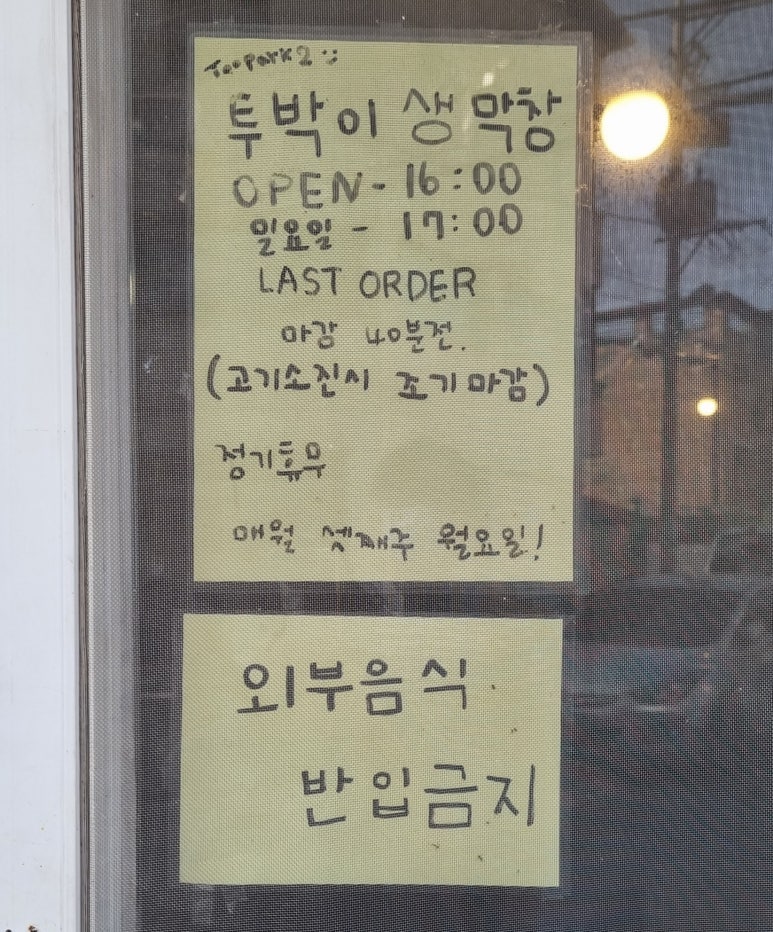 TooPark2 :)
투박이 생막창
OPEN - 16:00
일요일 - 17:00
LAST ORDER
마감 40분전.
(고기소진시 조기마감)
정기휴무
매월 셋째주 월요일!
외부음식
반입금지